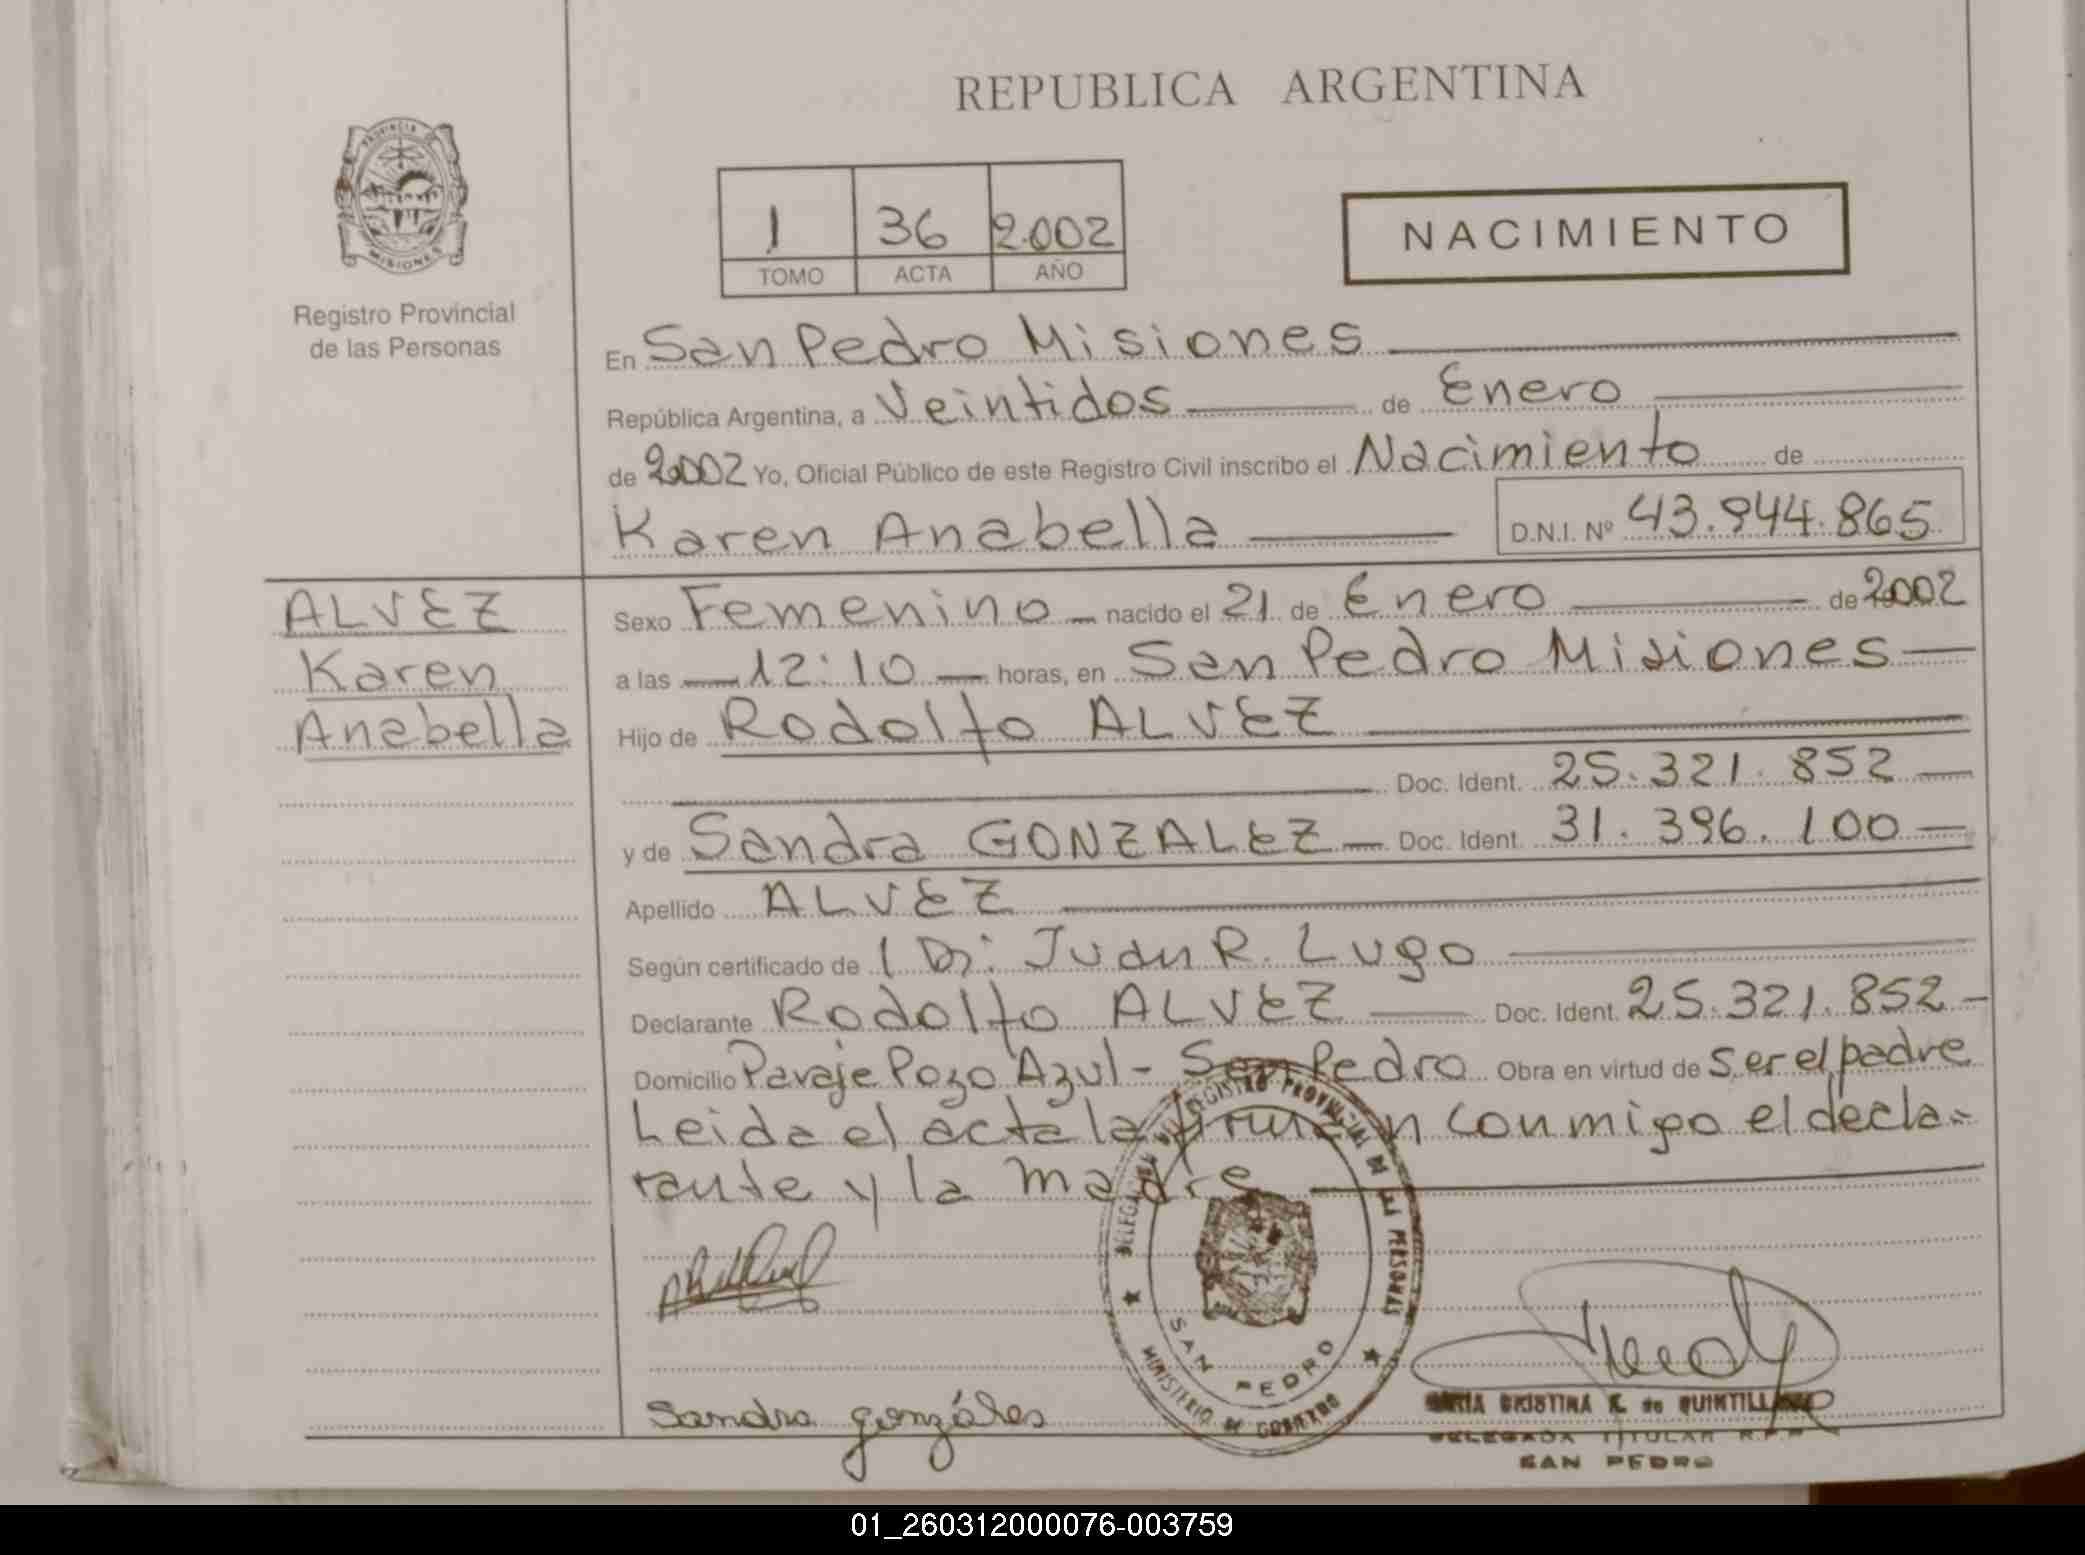 REPUBLICA ARGENTINA
PROVINCIA DE
MISIONES
Registro Provincial
de las Personas
1 36 2.002
TOMO ACTA AÑO
NACIMIENTO
En San Pedro Misiones
República Argentina, a Veintidos de Enero
de 2002 Yo, Oficial Público de este Registro Civil inscribo el Nacimiento de
Karen Anabella D.N.I. Nº 43.944.865
ALVEZ
Karen
Anabella
Sexo Femenino nacido el 21 de Enero de 2002
a las 12:10 horas, en San Pedro Misiones
Hijo de Rodolfo ALVEZ
Doc. Ident. 25.321.852
y de Sandra GONZALEZ Doc. Ident. 31.396.100
Apellido ALVEZ
Según certificado de Dr. Juan R. Lugo
Declarante Rodolfo ALVEZ Doc. Ident. 25.321.852
Domicilio Paraje Pozo Azul - San Pedro Obra en virtud de ser el padre
Leida el acta la firman conmigo el decla-
rante y la madre
REGISTRO PROVINCIAL DE LAS PERSONAS
SAN PEDRO
MINISTERIO DE GOBIERNO
Sandra gonzáles
MARIA CRISTINA de QUINTILLANO
DELEGADA TITULAR R.P.P.
SAN PEDRO
01_260312000076-003759